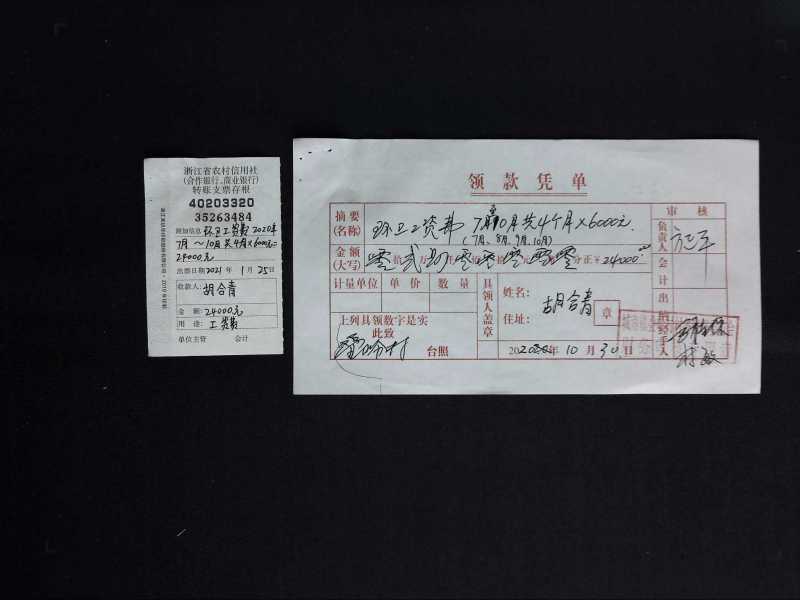 浙江省农村信用社
(合作银行、商业银行)
转账支票存根
40203320
35263484
附加信息 环卫工资费 2020年
7月～10月共4月×6000元=
24000元
出票日期 2021 年 1 月 25 日
收款人: 胡合青
金 额: 24000元
用 途: 工资费
单位主管 会计
领 款 凭 单
摘要(名称) 环卫工资费 7月至10月共4个月×6000元
(7月、8月、9月、10月)
审 核
负责人
金额(大写) 零 贰 肆 零 零 零 零 零 正¥24000.00
会计
计量单位 单 价 数 量
具领人盖章
姓名: 胡合青
住址:
章
出纳
经手人
上列具领数字是实
此致
台照
2020年 10 月 30 日